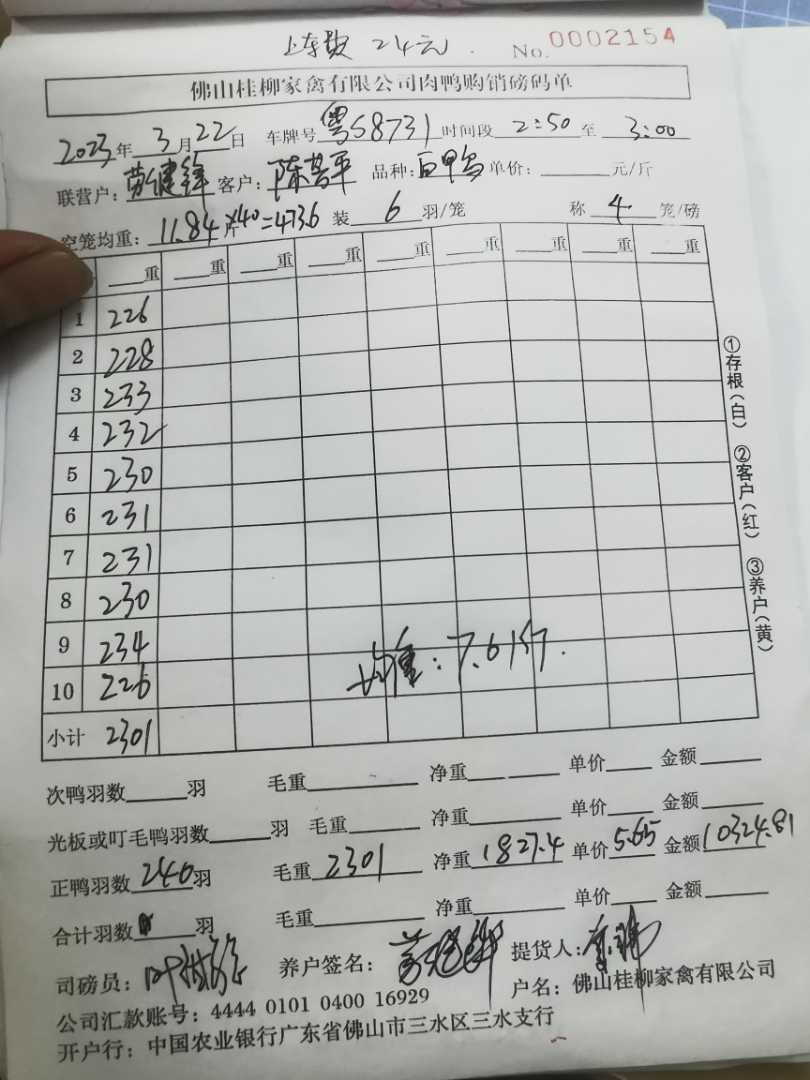 上车费 24元.
No. 0002154
佛山桂柳家禽有限公司肉鸭购销磅码单
2023年3月22日 车牌号粤S8731时间段2:50至3:00
联营户:劳健锋 客户:陈菩平 品种:白鸭 单价:____元/斤
空笼均重:11.84×40=473.6 装6羽/笼 称4笼/磅
____重 ____重 ____重 ____重 ____重 ____重 ____重 ____重 ____重
1 226
2 228
3 233
4 232
5 230
6 231
7 231
8 230
9 234
10 226
均重:7.61斤.
小计 2301
次鸭羽数____羽 毛重____ 净重____ 单价____ 金额____
光板或叮毛鸭羽数____羽 毛重____ 净重____ 单价____ 金额____
正鸭羽数240羽 毛重2301 净重1827.4 单价5.65 金额10324.81
合计羽数 羽 毛重____ 净重____ 单价____ 金额____
司磅员: 养户签名: 提货人:
公司汇款账号:4444 0101 0400 16929 户名:佛山桂柳家禽有限公司
开户行:中国农业银行广东省佛山市三水区三水支行
①存根(白) ②客户(红) ③养户(黄)